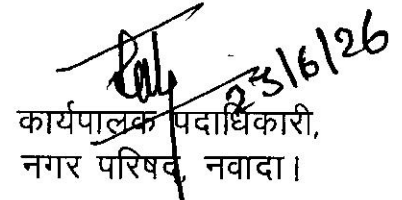 23/6/26
कार्यपालक पदाधिकारी,
नगर परिषद, नवादा।